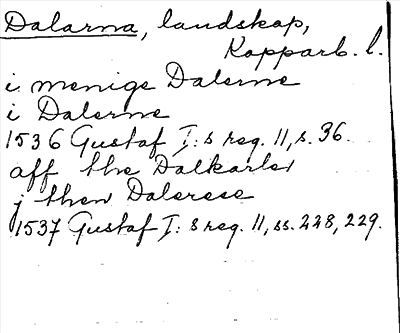 Dalarna, landskap,
Kopparb. l.
i menige Dalerne
i Dalerne
1536 Gustaf I:s reg. 11, s. 36.
aff the Dalkarler
j then Dalerese
1537 Gustaf I:s reg. 11, ss. 228, 229.